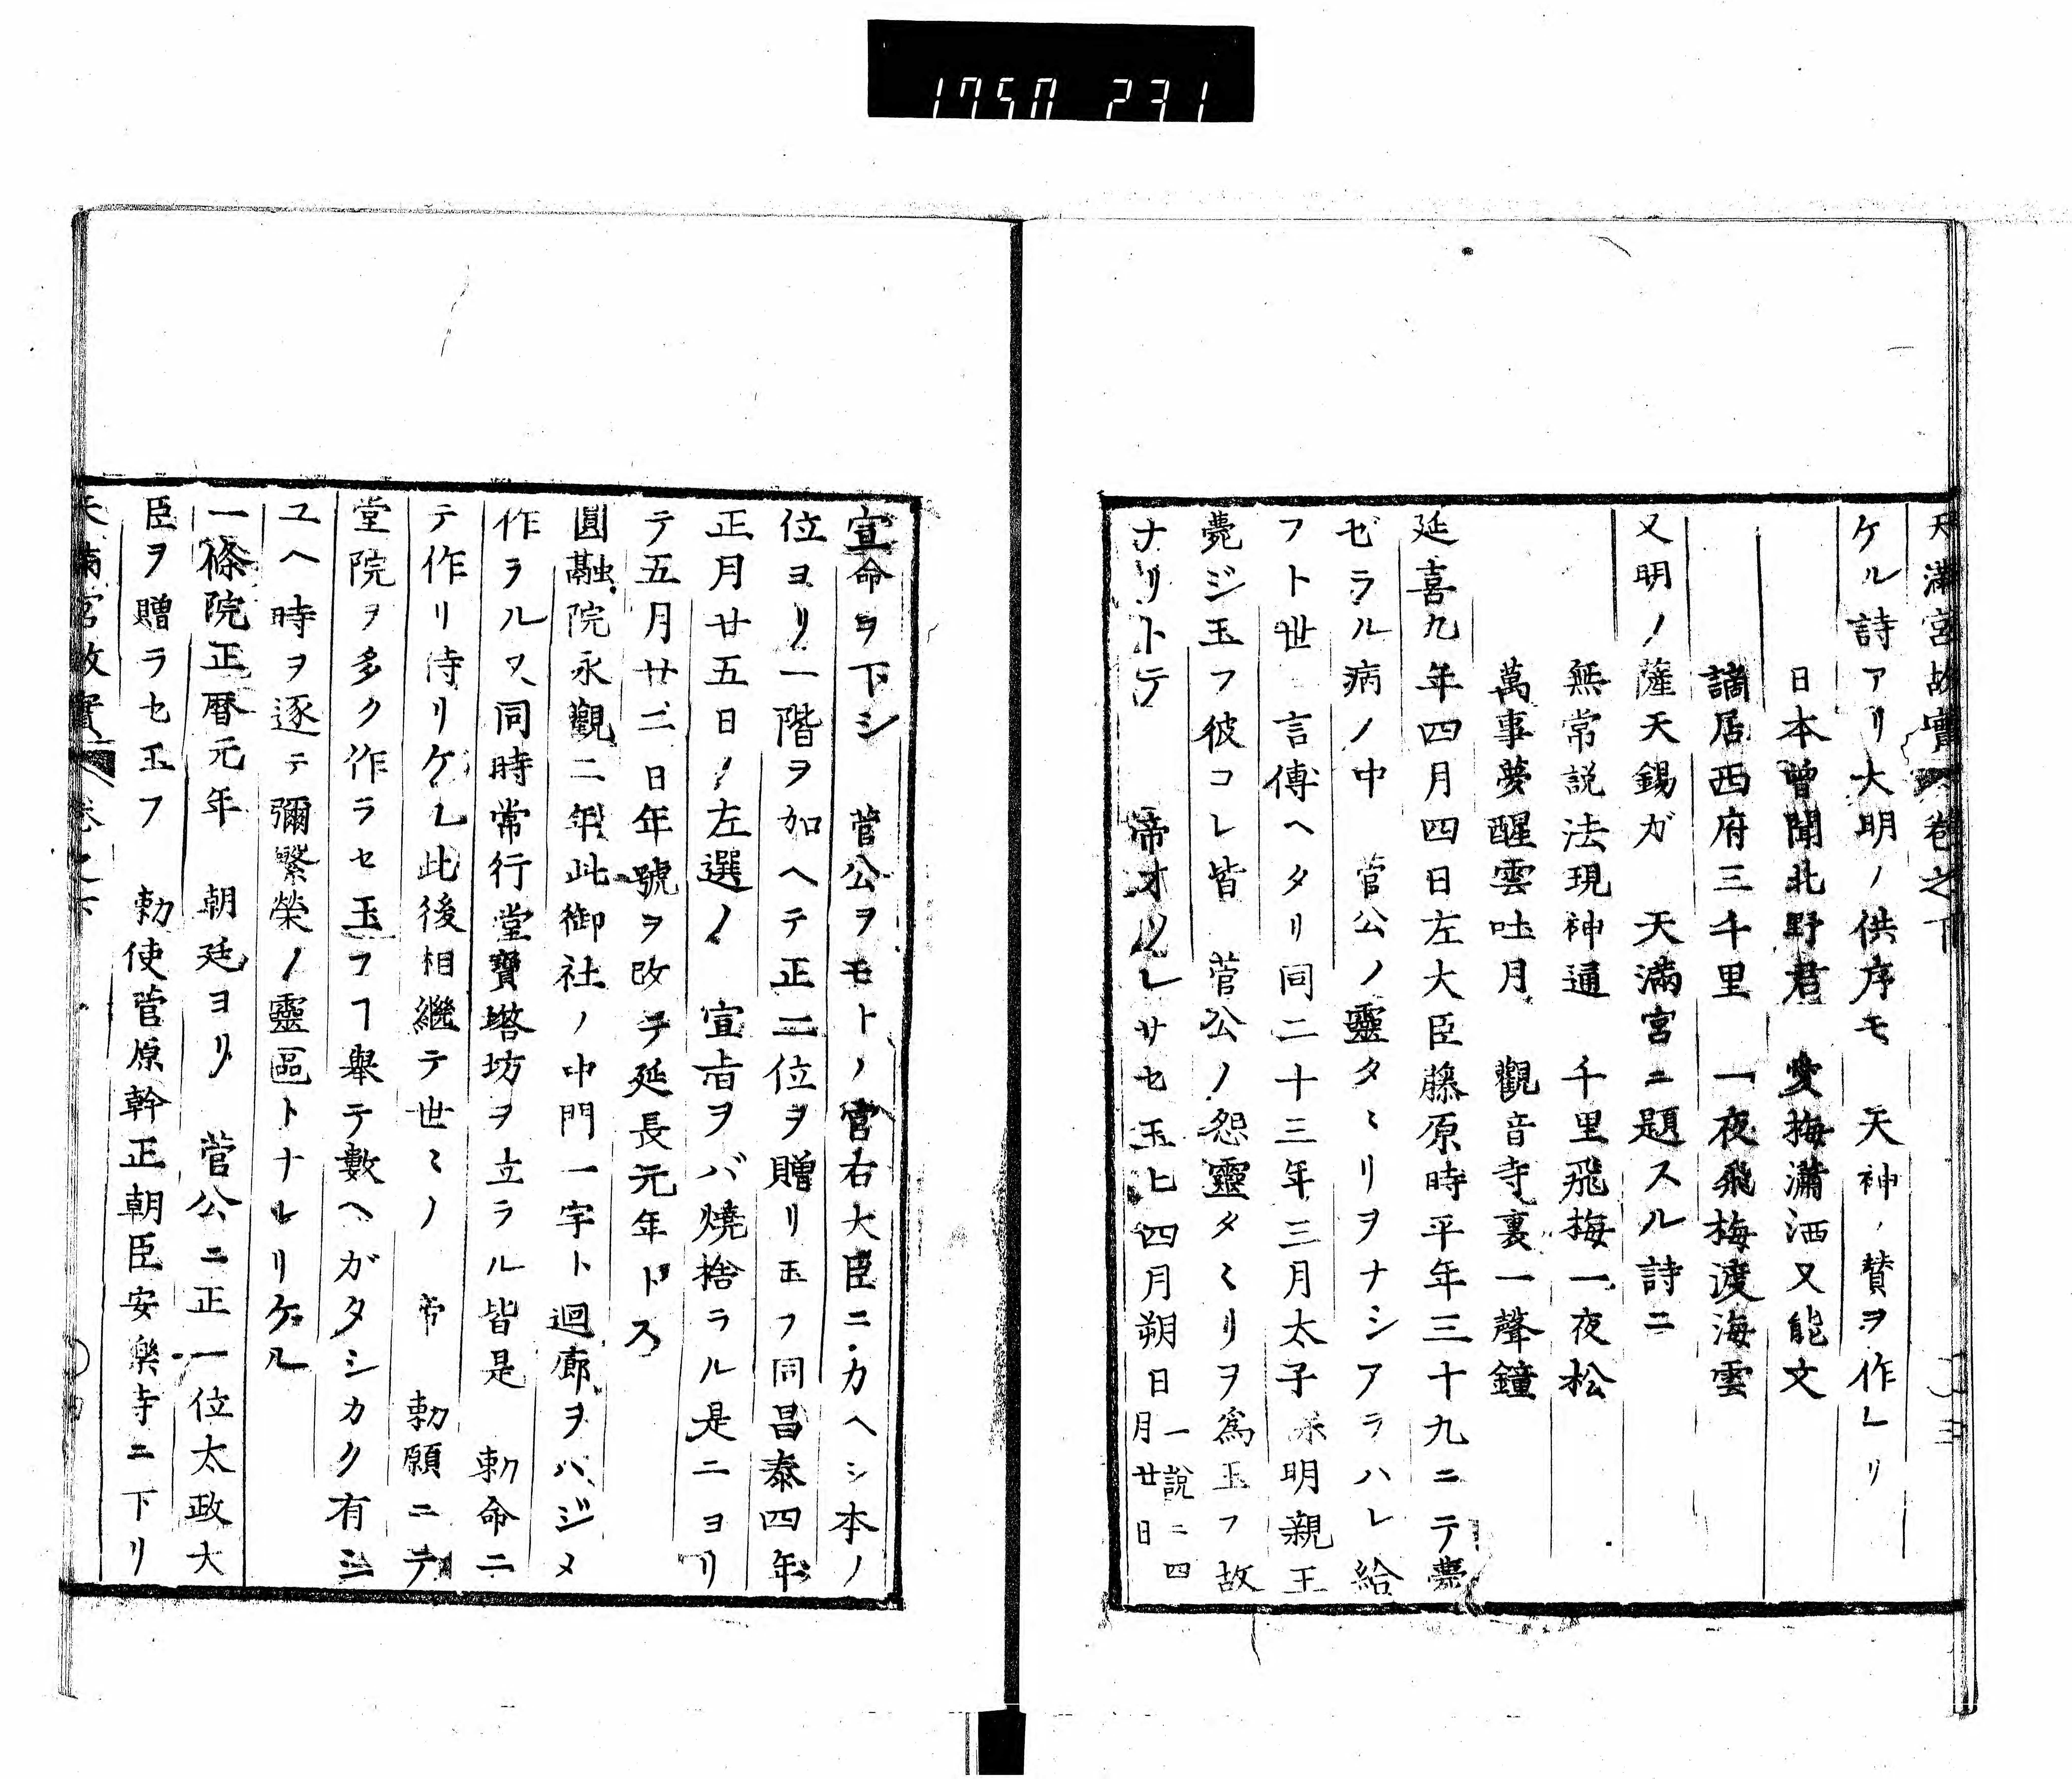 1750 231
天滿宮故實 卷之下 三
ケル詩アリ大明ノ供序モ　天神ノ賛ヲ作レリ
日本曽聞北野君　愛梅瀟洒又能文
謫居西府三千里　一夜飛梅渡海雲
又明ノ薩天錫ガ　天滿宮ニ題スル詩ニ
無常説法現神通　千里飛梅一夜松
萬事夢醒雲吐月　觀音寺裏一聲鐘
延喜九年四月四日左大臣藤原時平年三十九ニテ薨
ゼラル病ノ中　菅公ノ靈タヽリヲナシアラハレ給
フト世ニ言傳ヘタリ同二十三年三月太子保明親王
薨ジ玉フ彼コレ皆　菅公ノ怨靈タヽリヲ爲玉フ故
ナリトテ　帝オソレサセ玉ヒ四月朔日一說ニ四月廿日
宣命ヲ下シ　菅公ヲモトノ官右大臣ニカヘシ本ノ
位ヨリ一階ヲ加ヘテ正二位ヲ贈リ玉フ同昌泰四年
正月廿五日ノ左遷ノ　宣旨ヲバ燒捨ラル是ニヨリ
テ五月廿二日年號ヲ改テ延長元年トス
圓融院永觀二年此御社ノ中門一宇ト迴廊ヲハジメ
作ラル又同時常行堂寶塔坊ヲ立ラル皆是　勅命ニ
テ作リ侍リケル此後相繼テ世ヽノ　帝　勅願ニテ
堂院ヲ多ク作ラセ玉フヿ舉テ數ヘガタシカク有シ
ユヘ時ヲ逐テ彌繁榮ノ靈區トナレリケル
一條院正曆元年　朝廷ヨリ　菅公ニ正一位太政大
臣ヲ贈ラセ玉フ　勅使菅原幹正朝臣安樂寺ニ下リ
天滿宮故實 卷之下 四